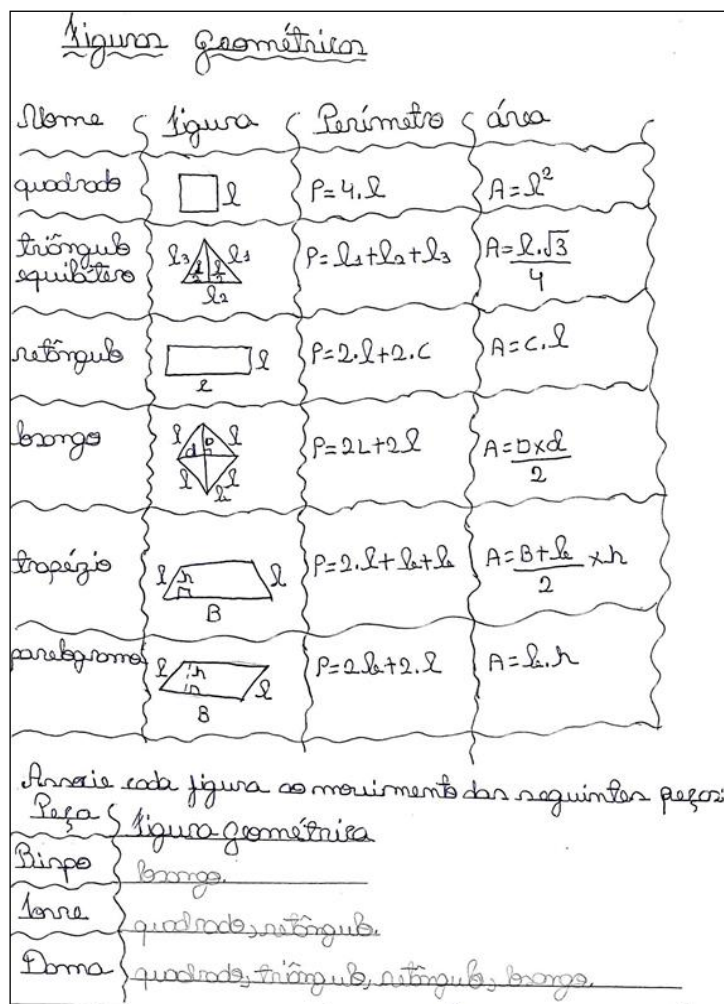 Figuras geométricas
Nome Figura Perímetro área
quadrado l P=4.l A=l²
triângulo equilátero l3 l1 l/2 l/2 l2 P=l1+l2+l3 A=l.√3/4
retângulo l c P=2.l+2.c A=c.l
losango l l d D l l b P=2L+2l A=Dxd/2
trapézio l h l B P=2.l+b+b A=B+b/2 xh
paralogramo l h l B P=2b+2.l A=b.h
Associe cada figura ao movimento das seguintes peças:
Peça Figura geométrica
Bispo losango.
Torre quadrado, retângulo.
Dama quadrado, triângulo, retângulo, losango.